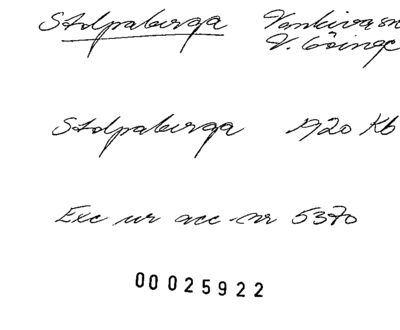 Stolpaberga Vankiva sn
V. Göinge
Stolpaberga 1920 Kb
Exc ur acc nr 5370
00025922